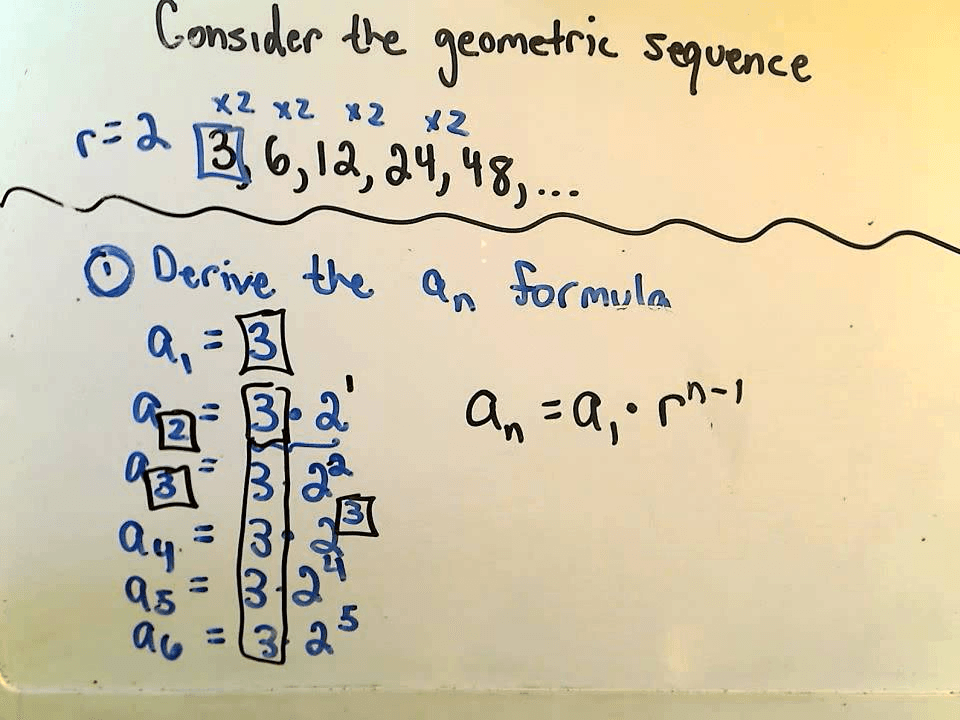 Consider the geometric sequence
×2 ×2 ×2 ×2
r = 2 3, 6, 12, 24, 48, ...
① Derive the aₙ formula
a₁ = 3
a₂ = 3 · 2¹
a₃ = 3 · 2²
a₄ = 3 · 2³
a₅ = 3 · 2⁴
a₆ = 3 · 2⁵
aₙ = a₁ · rⁿ⁻¹